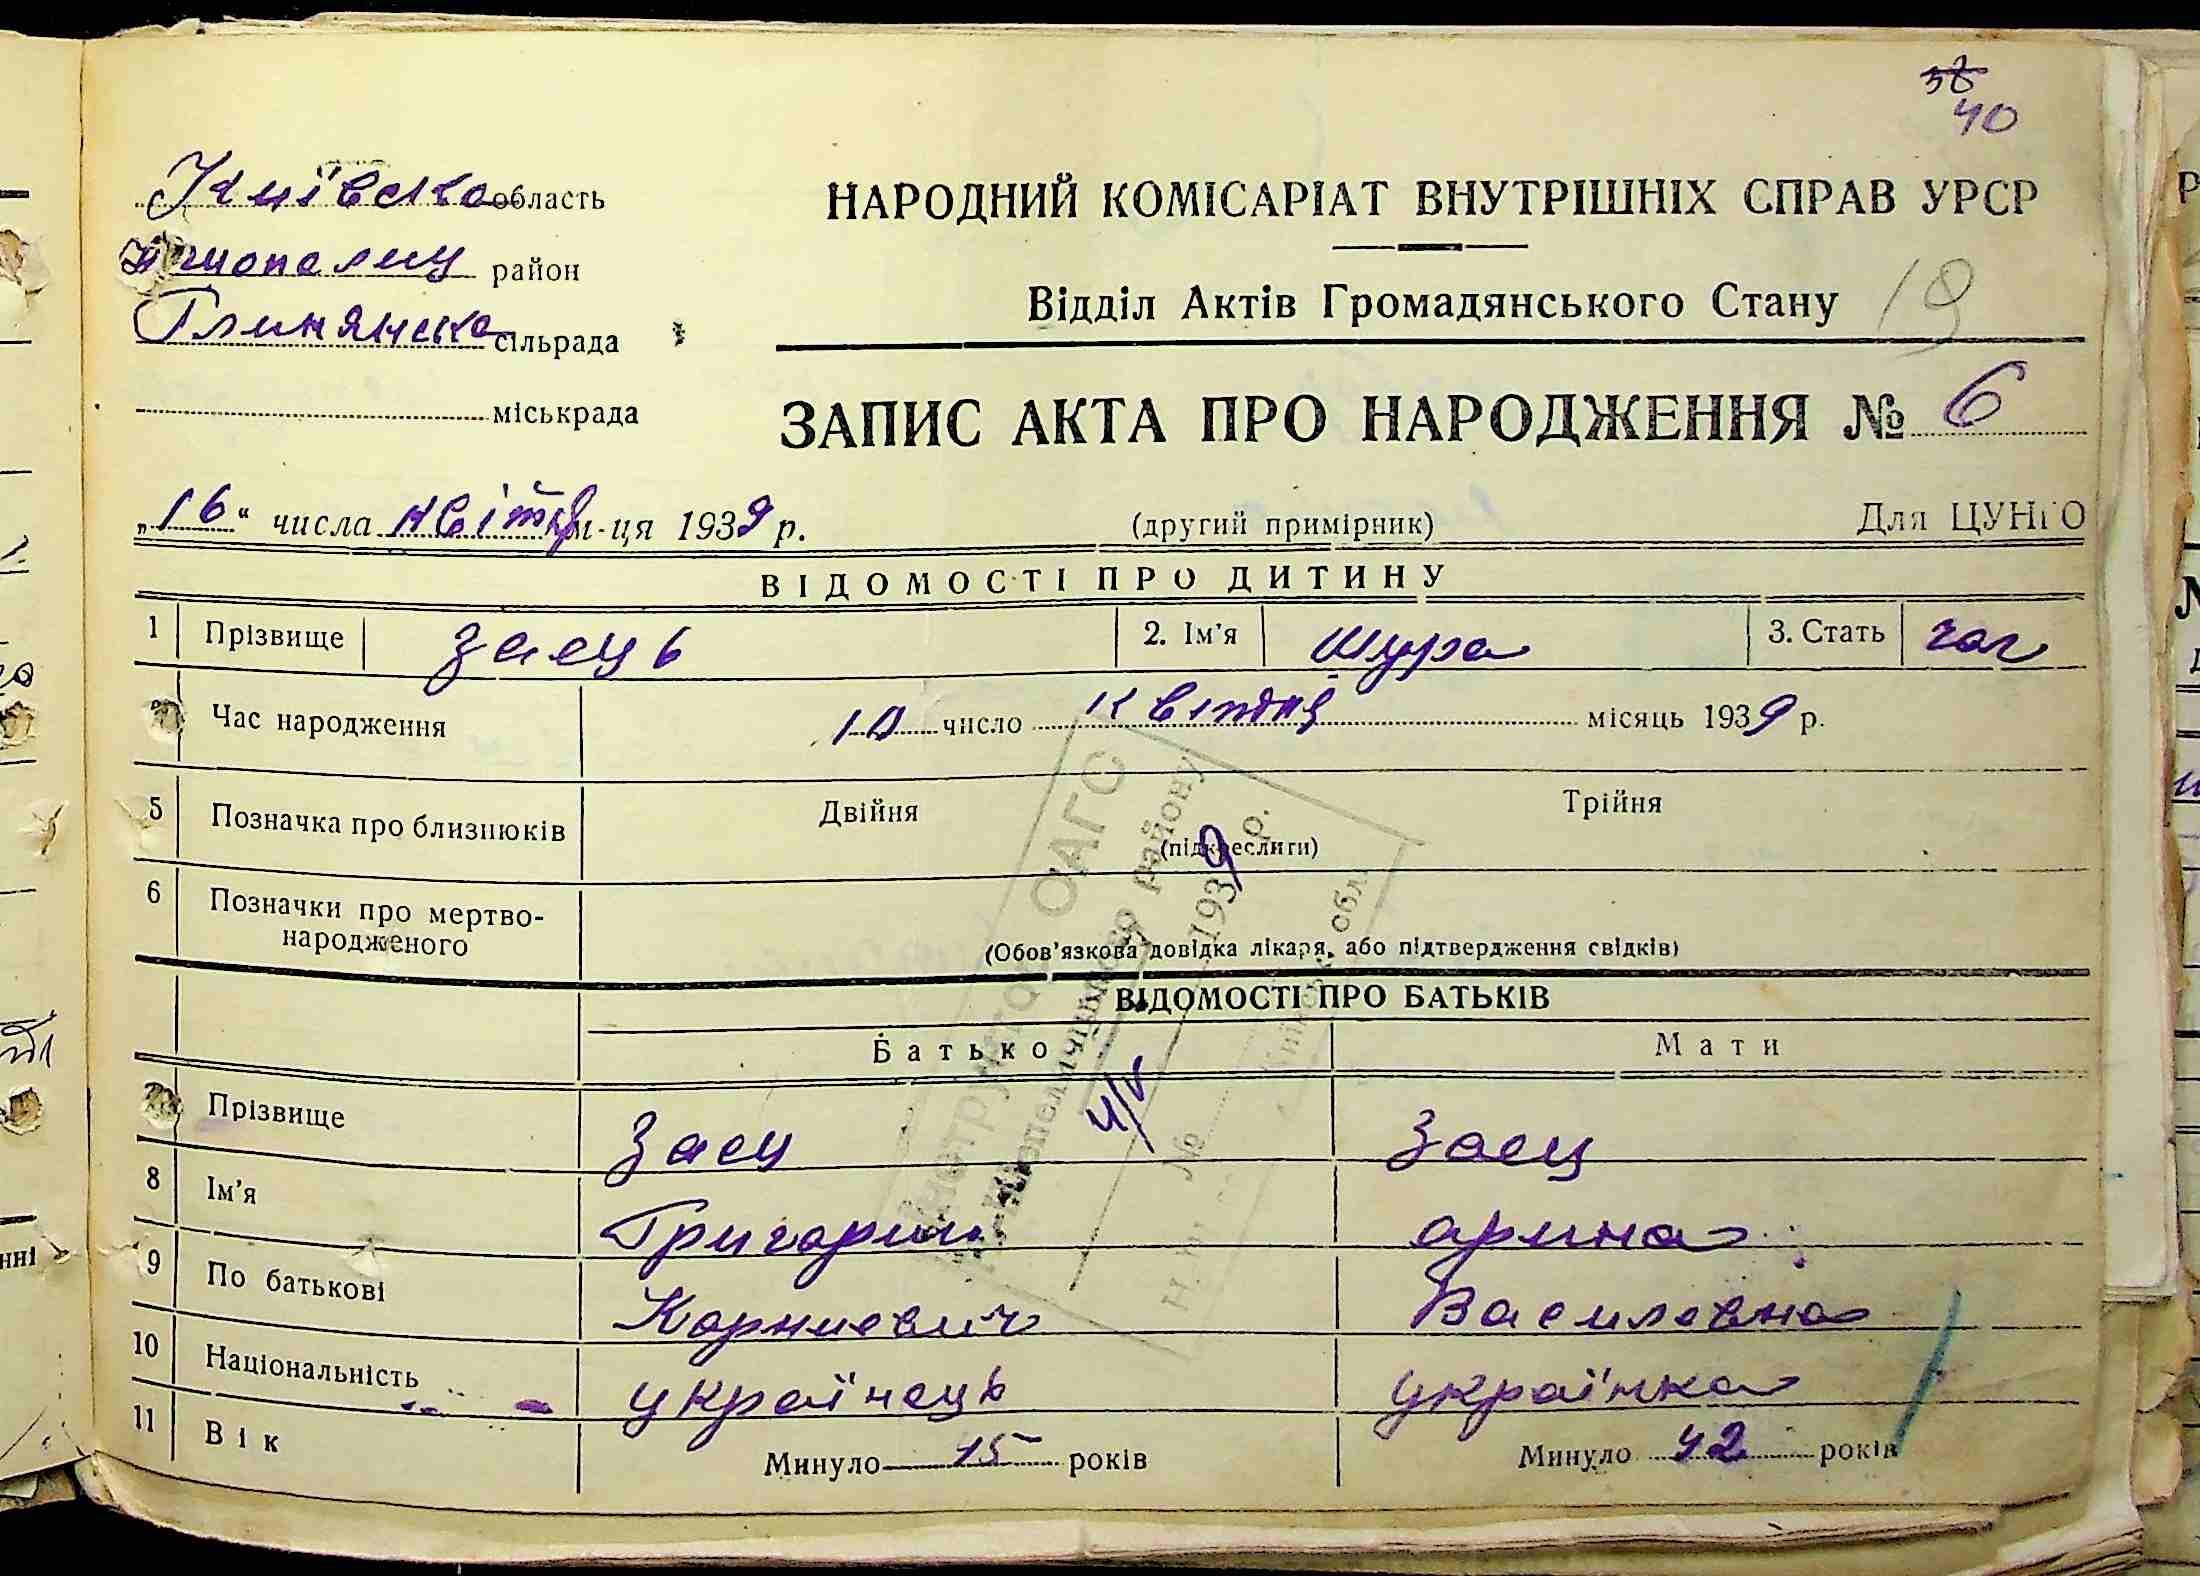 38
40
Київска область
район
Глинянска сільрада
міськрада
НАРОДНИЙ КОМІСАРІАТ ВНУТРІШНІХ СПРАВ УРСР
Відділ Актів Громадянського Стану 19
ЗАПИС АКТА ПРО НАРОДЖЕННЯ № 6
„16“ числа квітня м-ця 1939 р.
(другий примірник)
Для ЦУНГО
ВІДОМОСТІ ПРО ДИТИНУ
1 Прізвище Заець 2. Ім'я Шура 3. Стать чол
Час народження 10 число квітня місяць 1939 р.
5 Позначка про близнюків Двійня Трійня
(підкреслити)
6 Позначки про мертво-
народженого
(Обов'язкова довідка лікаря, або підтвердження свідків)
ВІДОМОСТІ ПРО БАТЬКІВ
Батько Мати
Прізвище Заец Заец
8 Ім'я Григорий арина
9 По батькові Корниевич Василевна
10 Національність українець українка
11 Вік Минуло 45 років Минуло 42 років
ОАГС
району
1939 р.
№